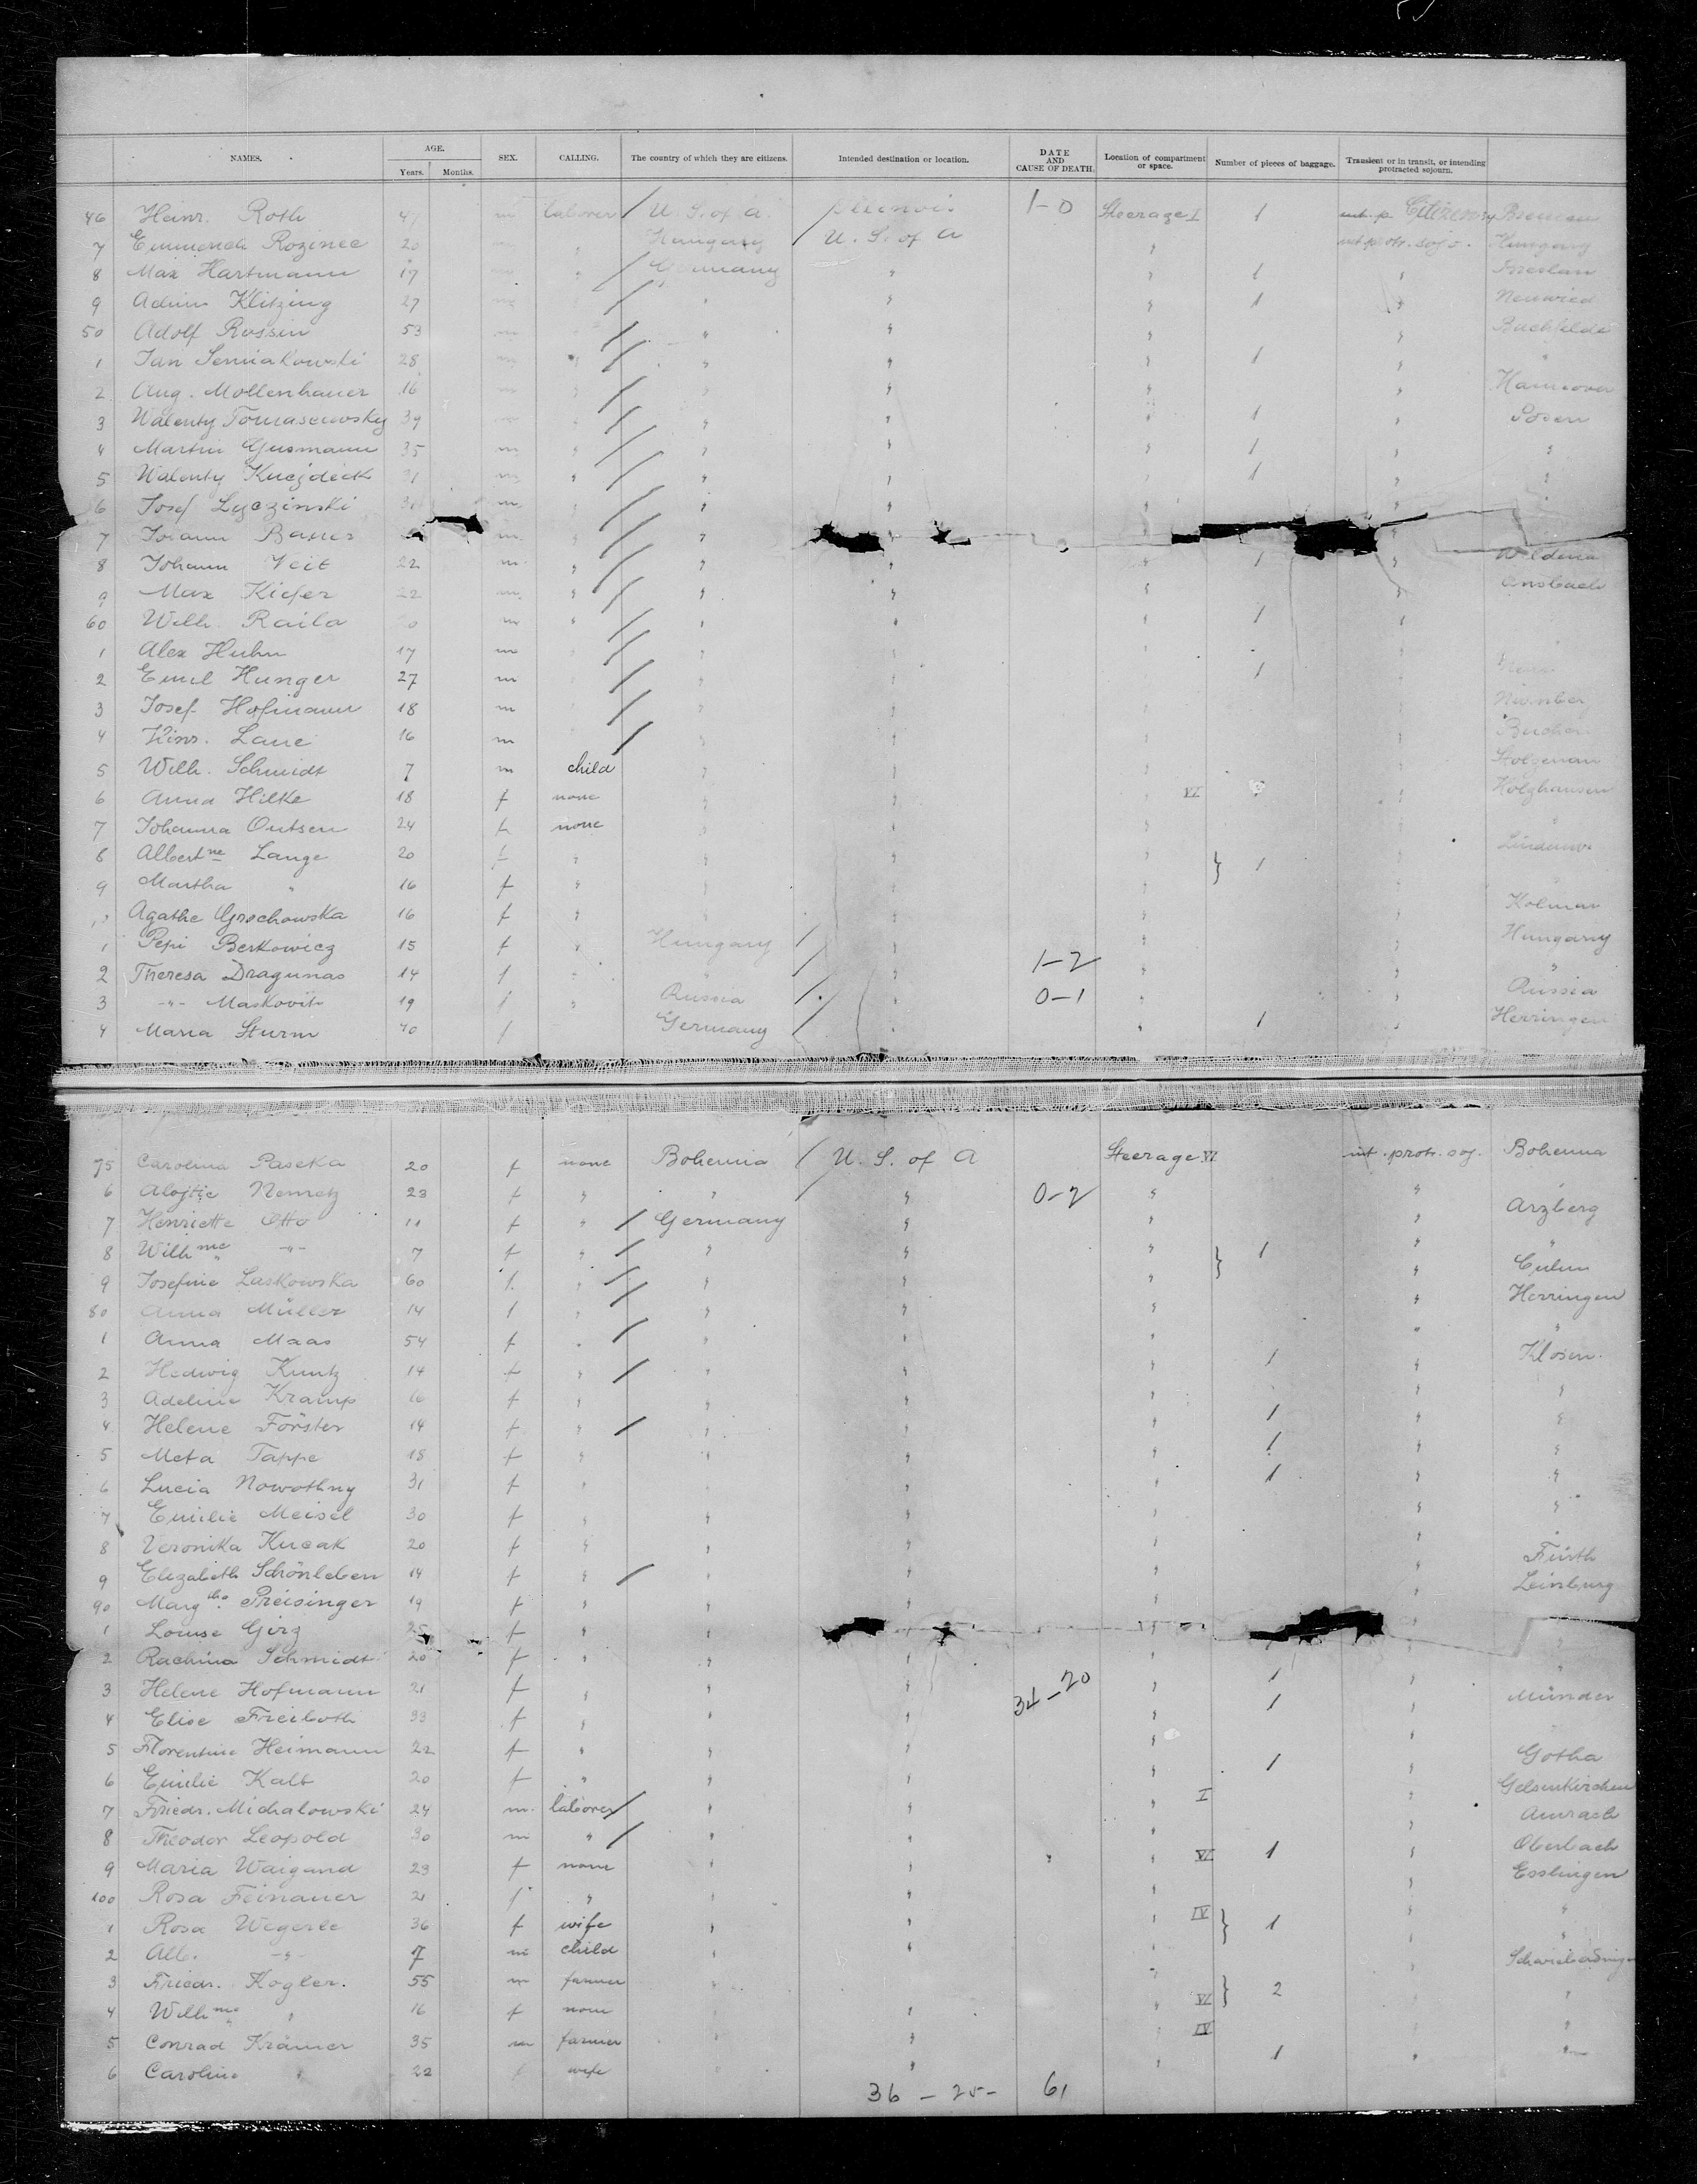 NAMES. AGE. Years. Months. SEX. CALLING. The country of which they are citizens. Intended destination or location. DATE AND CAUSE OF DEATH. Location of compartment or space. Number of pieces of baggage. Transient or in transit, or intending protracted sojourn.
46 Heinr. Roth 47 m laborer / U. S. of a. Illinois 1-0 Steerage I 1 Citizen Bremen
7 Rozinec 20 " Hungary / U. S. of A " int. protr. sojo. Hungary
8 Max Hartmann 17 " / Germany " " 1 " Breslau
9 Klitzing 27 / " " " 1 " Neuwied
50 Adolf Rossin 53 m / " " " "
1 Jan Semiakowski 28 " / " " " 1 " "
2 Aug. Mollenhauer 16 m " / " " " " Hannover
3 Walenty 39 " / " " " 1 " Posen
4 Martin Gusmann 35 m " / " " " 1 " "
5 Walenty 31 m " / " " " 1 " "
6 Josef Lyczinski m " / " " " "
7 Johann m " / " " "
8 Johann Veit 22 m " / " " " 1 "
9 Max Kiefer 22 m. " / " " " " Ansbach
60 Wilh. Raila m " / " " " 1 "
1 Alex Huhn 17 m / " " " "
2 Emil Hunger 27 m / " " " 1 "
3 Josef Hofmann 18 m / " " " "
4 Hinr. Laue 16 m / " " " "
5 Wilh. Schmidt 7 m child " " " " Stolzenau
6 Anna Hilke 18 f none " " " VI " Holzhausen
7 Johanna Outsen 24 f none " " " "
8 Albert ne Lange 20 f " " " " } 1 "
9 Martha " 16 f " " " " "
Agathe Grochowska 16 f " " " " " Kolmar
1 Pepi Berkowicz 15 f " Hungary / " " " Hungary
2 Theresa Dragunas 14 f " " / " 1-2 " " "
3 -"- Maskovits 19 f " Russia / " 0-1 " " Russia
4 Maria Sturm 40 f Germany / " " 1 " Herringen
75 Carolina Paseka 20 f none Bohemia / U. S. of A Steerage VI int. protr. soj. Bohemia
6 Alojtie Nemetz 23 f " " / " 0-2 " "
7 Henriette Otto 11 f " / Germany " " " Arzberg
8 Wilh me -"- 7 f " / " " " } 1 " "
9 Josefine Laskowska 60 f. " / " " " " Culm
80 Anna Müller 14 f " / " " " " Herringen
1 Anna Maas 54 f " / " " " "
2 Hedwig Kuntz 14 f " / " " " 1 " Klosen.
3 Adeline Kramp 16 f " " " " " "
4 Helene Förster 14 f " / " " " 1 " "
5 Meta Tappe 18 f " " " " 1 " "
6 Lucia Nowothny 31 f " " " 1 " "
7 Emilie Meisel 30 f " " " " " "
8 Veronika Kucak 20 f " " " " "
9 Elizabeth Schönleben 14 f " / " " " " Fürth
90 Marg tha Preisinger 19 f " " " " " Leinburg
1 Louise Girg 25 f " " " " "
2 Schmidt 20 f " " " " 1 "
3 Helene Hofmann 21 f " " " 34-20 " 1 " Münder
4 Elise Freiboth 33 f " " " " "
5 Florentine Heimann 22 f " " " " 1 " Gotha
6 Emilie Kalb 20 f " " " " Gelsenkirchen
7 Friedr. Michalowski 24 m. laborer / " " " I "
8 Theodor Leopold 30 m " / " " " " Oberbach
9 Maria Waigand 23 f none " " " VI 1 " Esslingen
100 Rosa Feinauer 21 f " " " " "
1 Rosa Wegerle 36 f wife " " " IV } 1 " "
2 Alb. -"- 7 m child " " " "
3 Friedr. Kogler. 55 m farmer " " } 2 "
4 Wilh me " 16 f none " " VI "
5 Conrad Krämer 35 m farmer " " IV "
6 Caroline " 22 f wife " " 1 "
36 - 25 - 61